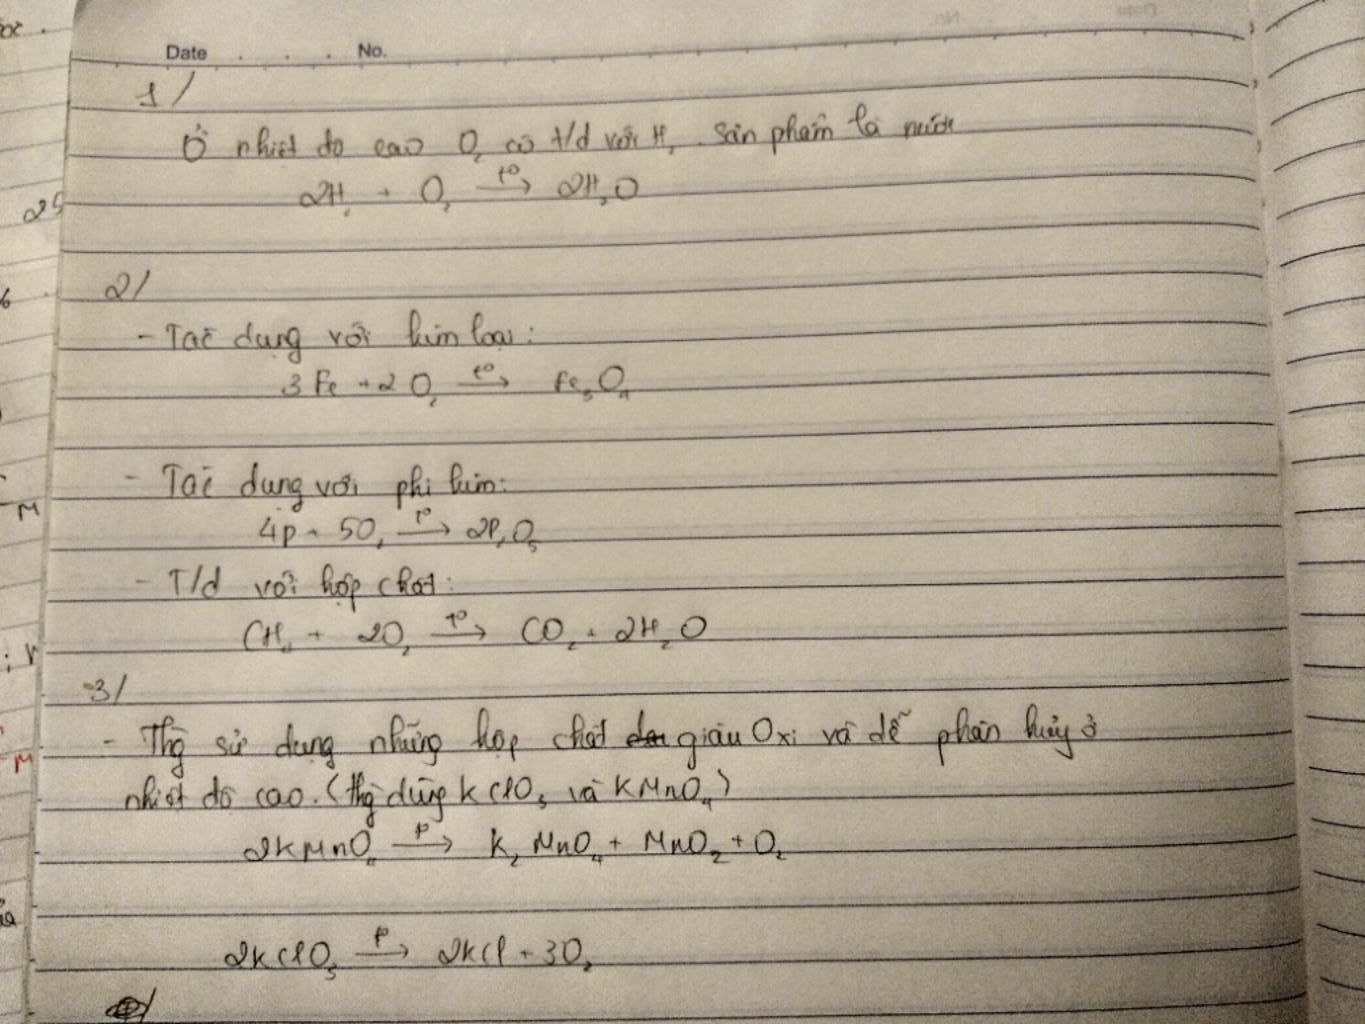 Date . . . No.
1/
Ở nhiệt độ cao O₂ có t/d với H₂. Sản phẩm là nước
2H₂ + O₂ –t°→ 2H₂O
2/
- Tác dụng với kim loại:
3Fe + 2O₂ –t°→ Fe₃O₄
- Tác dụng với phi kim:
4P + 5O₂ –t°→ 2P₂O₅
- T/d với hợp chất:
CH₄ + 2O₂ –t°→ CO₂ + 2H₂O
3/
- Thg sử dụng những hợp chất giàu Oxi và dễ phân hủy ở
nhiệt độ cao. (thg dùng KClO₃ và KMnO₄)
2KMnO₄ –t°→ K₂MnO₄ + MnO₂ + O₂
2KClO₃ –t°→ 2KCl + 3O₂